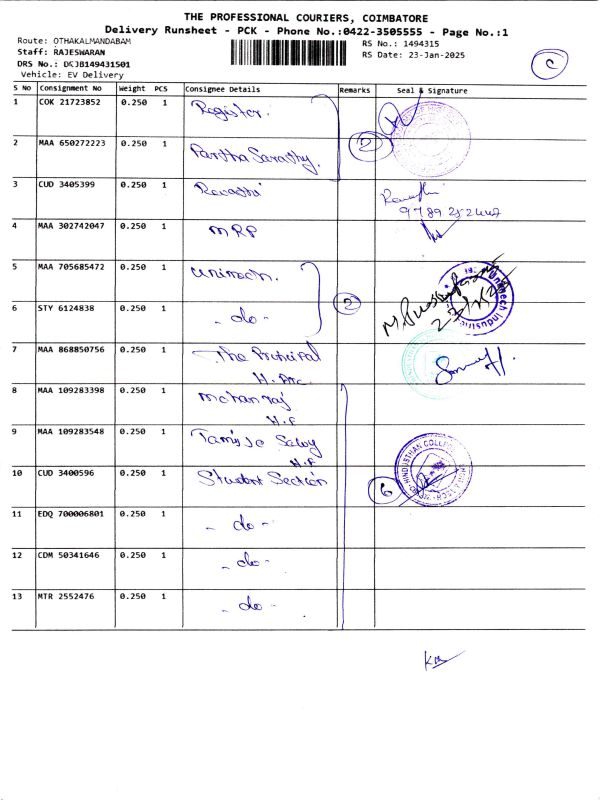 THE PROFESSIONAL COURIERS, COIMBATORE
Delivery Runsheet - PCK - Phone No.:0422-3505555 - Page No.:1
Route: OTHAKALMANDABAM
Staff: RAJESWARAN
DRS No.: DCJB149431501
Vehicle: EV Delivery
RS No.: 1494315
RS Date: 23-Jan-2025
C
S No Consignment No Weight PCS Consignee Details Remarks Seal & Signature
1 COK 21723852 0.250 1 Register.
2 MAA 650272223 0.250 1 Partha Sarathy. 2
3 CUD 3405399 0.250 1 Revathi
4 MAA 302742047 0.250 1 MRP
5 MAA 705685472 0.250 1 Unitech.
6 STY 6124838 0.250 1 - do - 2
7 MAA 868850756 0.250 1 The Principal
8 MAA 109283398 0.250 1 Mohan raj
H.F
9 MAA 109283548 0.250 1
H.F
10 CUD 3400596 0.250 1 Student Section 6
11 EDQ 700006801 0.250 1 - do -
12 CDM 50341646 0.250 1 - do -
13 MTR 2552476 0.250 1 - do -